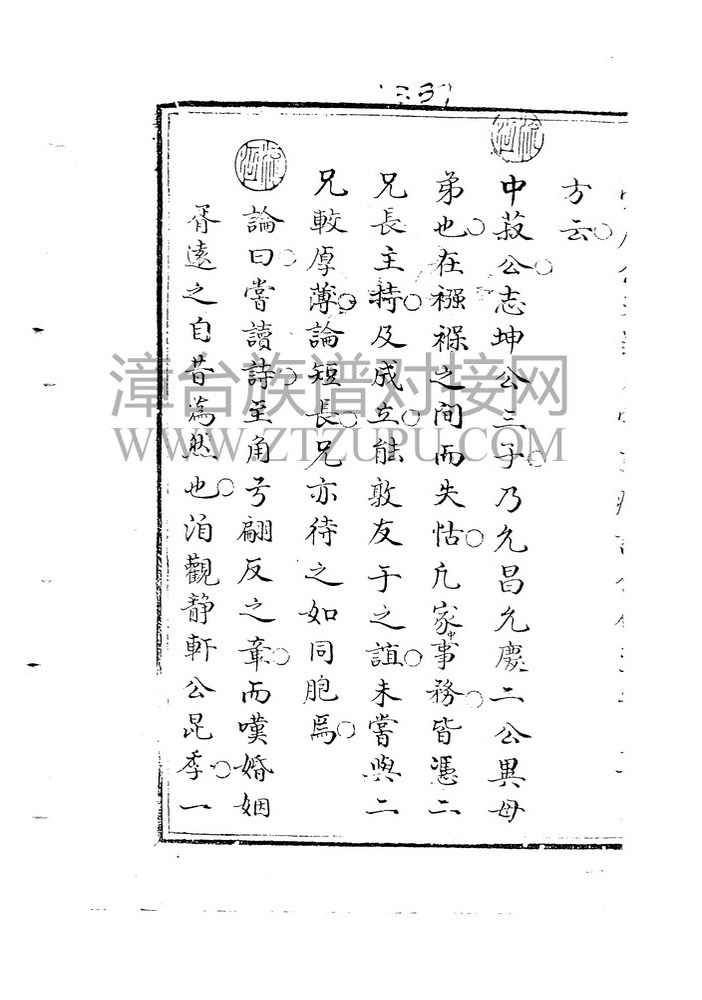 方云
中菽公志坤公三子乃允昌允慶二公異母
弟也在襁褓之间而失怙凢家中事務皆憑二
兄長主持及成立能敦友于之誼未嘗與二
兄較厚薄論短長兄亦待之如同胞焉
論曰嘗讀詩至角弓翩反之章而嘆婚姻
胥遠之自昔為然也洎觀静軒公昆季一
漳台族谱对接网
WWW.ZTZUPU.COM